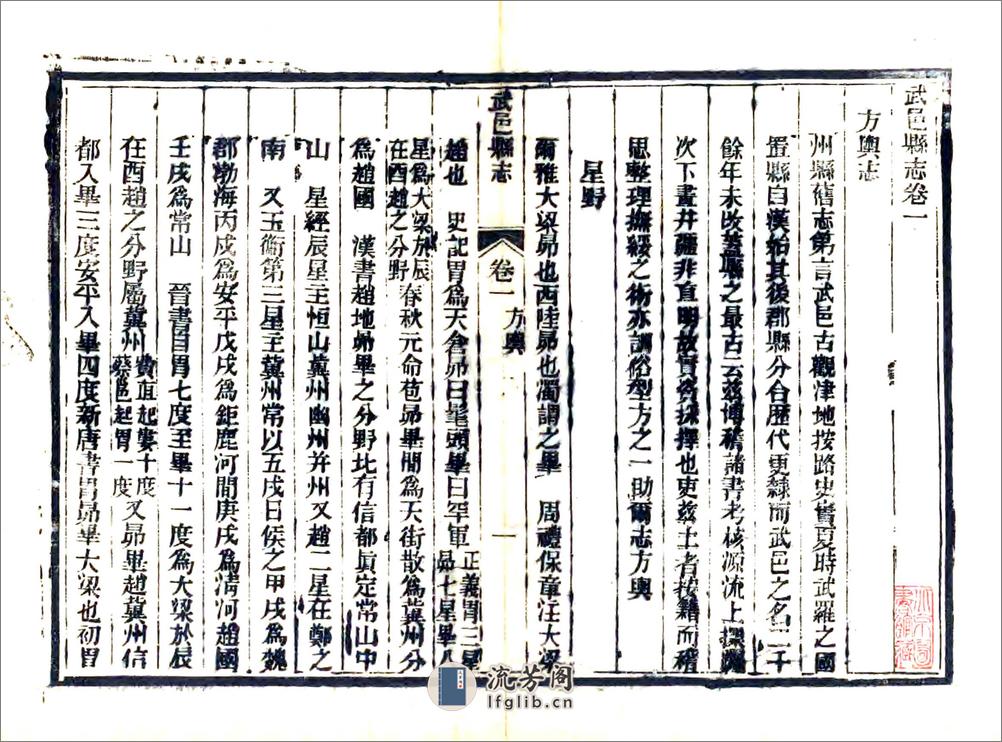 武邑縣志卷一
方輿志
州縣舊志第言武邑古觀津地按路史實夏時武羅之國
置縣自漢始其後郡縣分合歷代更隸而武邑之名二千
餘年未改蓋縣之最古云茲博稽諸書考核源流上探躔
次下畫井疆非直明故實資採擇也吏茲土者按籍而稽
思整理撫綏之術亦訓俗型方之一助爾志方輿
星野
爾雅大梁昴也西陸昴也濁謂之畢 周禮保章注大梁
趙也 史記胃為天倉昴曰髦頭畢曰罕軍 正義胃三星昴七星畢八
星為大梁於辰在酉趙之分野 春秋元命苞昴畢間為天街散為冀州分
為趙國 漢書趙地昴畢之分野北有信都眞定常山中
山 星經辰星主恒山冀州幽州并州又趙二星在鄭之
南 又玉衡第三星主冀州常以五戌日侯之甲戌為魏
郡渤海丙戌為安平戊戌為鉅鹿河間庚戌為清河趙國
壬戌為常山 晉書自胃七度至畢十一度為大梁於辰
在酉趙之分野屬冀州 費直起婁十度蔡邕起胃一度 又昴畢趙冀州信
都入畢三度安平入畢四度新唐書胃昴畢大梁也初胃
武邑縣志
卷一 方輿
一
流芳阁
lfglib.cn